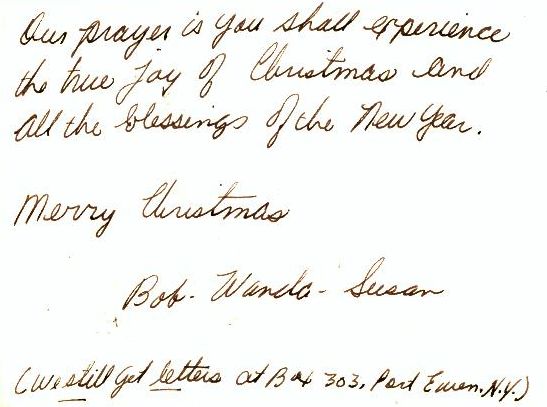 Our prayer is you shall experience
the true Joy of Christmas and
all the blessings of the New Year.
Merry Christmas
Bob - Wanda - Susan
(We still get letters at Box 303, Port Ewen, N.Y.)